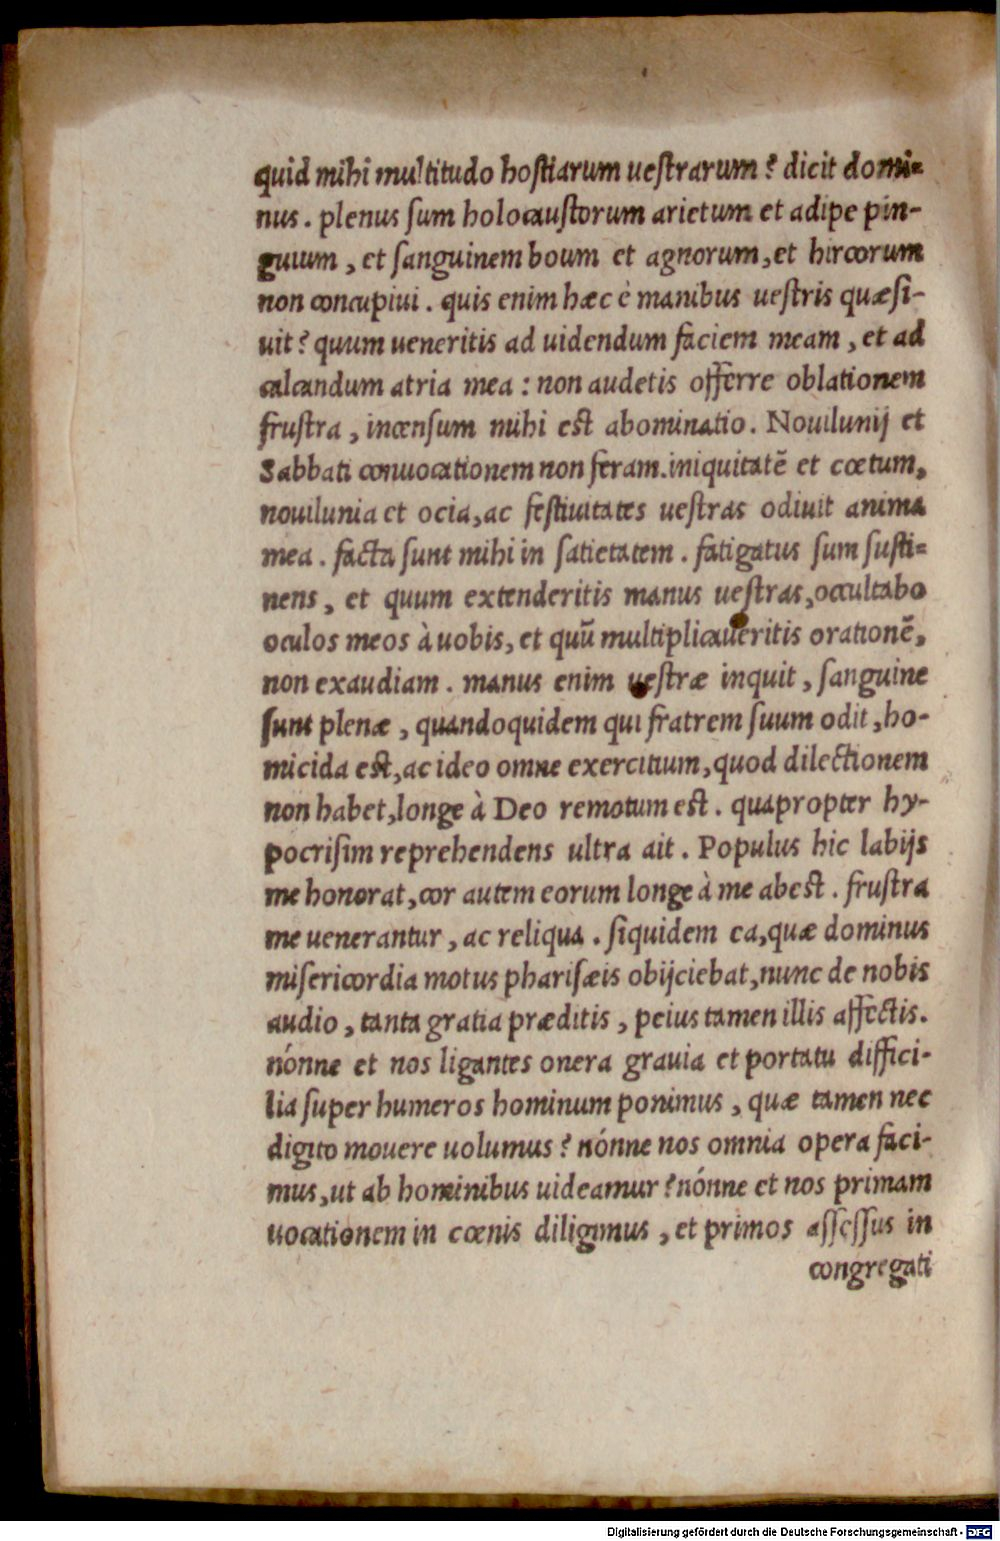 quid mihi multitudo hostiarum uestrarum? dicit domi-
nus. plenus sum holocaustorum arietum et adipe pin-
guium, et sanguinem boum et agnorum, et hircorum
non concupiui. quis enim hæc è manibus uestris quæsi-
uit? quum ueneritis ad uidendum faciem meam, et ad
calcandum atria mea: non audetis offerre oblationem
frustra, incensum mihi est abominatio. Nouilunij et
Sabbati conuocationem non feram. iniquitatē et cœtum,
nouilunia et ocia, ac festiuitates uestras odiuit anima
mea. facta sunt mihi in satietatem. fatigatus sum susti-
nens, et quum extenderitis manus uestras, occultabo
oculos meos à uobis, et quū multiplicaueritis orationē,
non exaudiam. manus enim uestræ inquit, sanguine
sunt plenæ, quandoquidem qui fratrem suum odit, ho-
micida est, ac ideo omne exercitium, quod dilectionem
non habet, longe à Deo remotum est. quapropter hy-
pocrisim reprehendens ultra ait. Populus hic labijs
me honorat, cor autem eorum longe à me abest. frustra
me uenerantur, ac reliqua. siquidem ea, quæ dominus
misericordia motus pharisæis obijciebat, nunc de nobis
audio, tanta gratia præditis, peius tamen illis affectis.
nónne et nos ligantes onera grauia et portatu diffici-
lia super humeros hominum ponimus, quæ tamen nec
digito mouere uolumus? nónne nos omnia opera faci-
mus, ut ab hominibus uideamur? nónne et nos primam
uocationem in cœnis diligimus, et primos assessus in
congregati
Digitalisierung gefördert durch die Deutsche Forschungsgemeinschaft - DFG